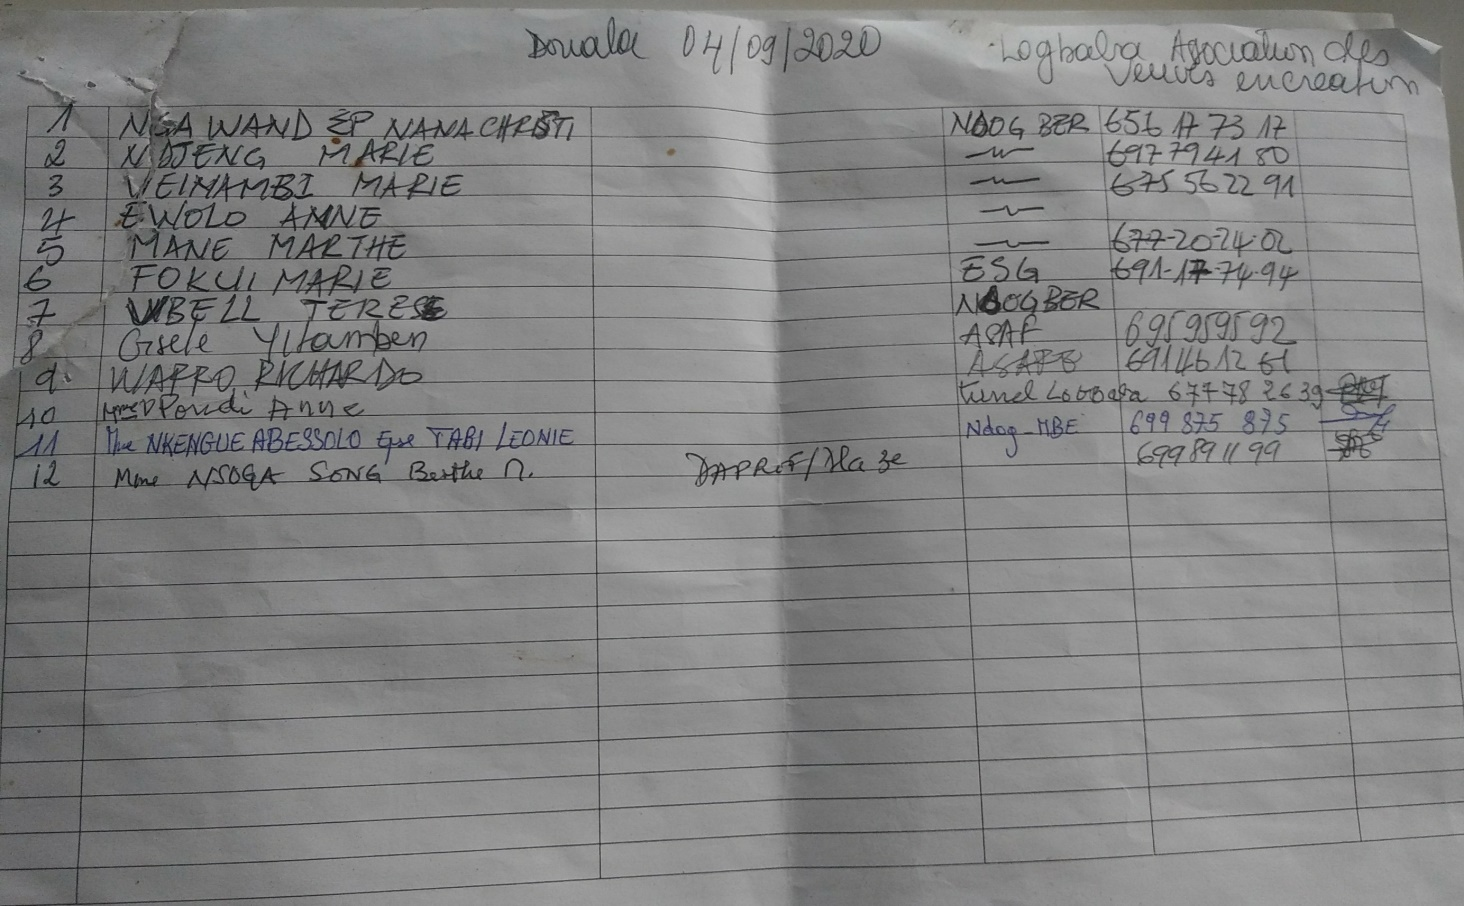 Douala 04/09/2020 Logbaba Asociation des
Veuves en creation
1 NGA WAND EP NANA CHRISTI NDOG BER 656 17 73 17
2 NDJENG MARIE —〃— 697 79 41 80
3 VEIMAMBI MARIE —〃— 675 56 22 91
4 EWOLO ANNE —〃—
5 MANE MARTHE —〃— 677-20-24-02
6 FOKUI MARIE ESG 691-17-74-94
7 MBELL TERESE NDOGBER
8 Gisele Yitamben ASAF 695959592
9. WAFFO RICHARDO 691461261
10 Poudi Anne Tunel Logbaba 677 78 26 39
11 Mme NKENGUE ABESSOLO Epse TABI LEONIE Ndog-MBE 699 875 875
12 Mme NSOGA SONG Berthe N. 699891199